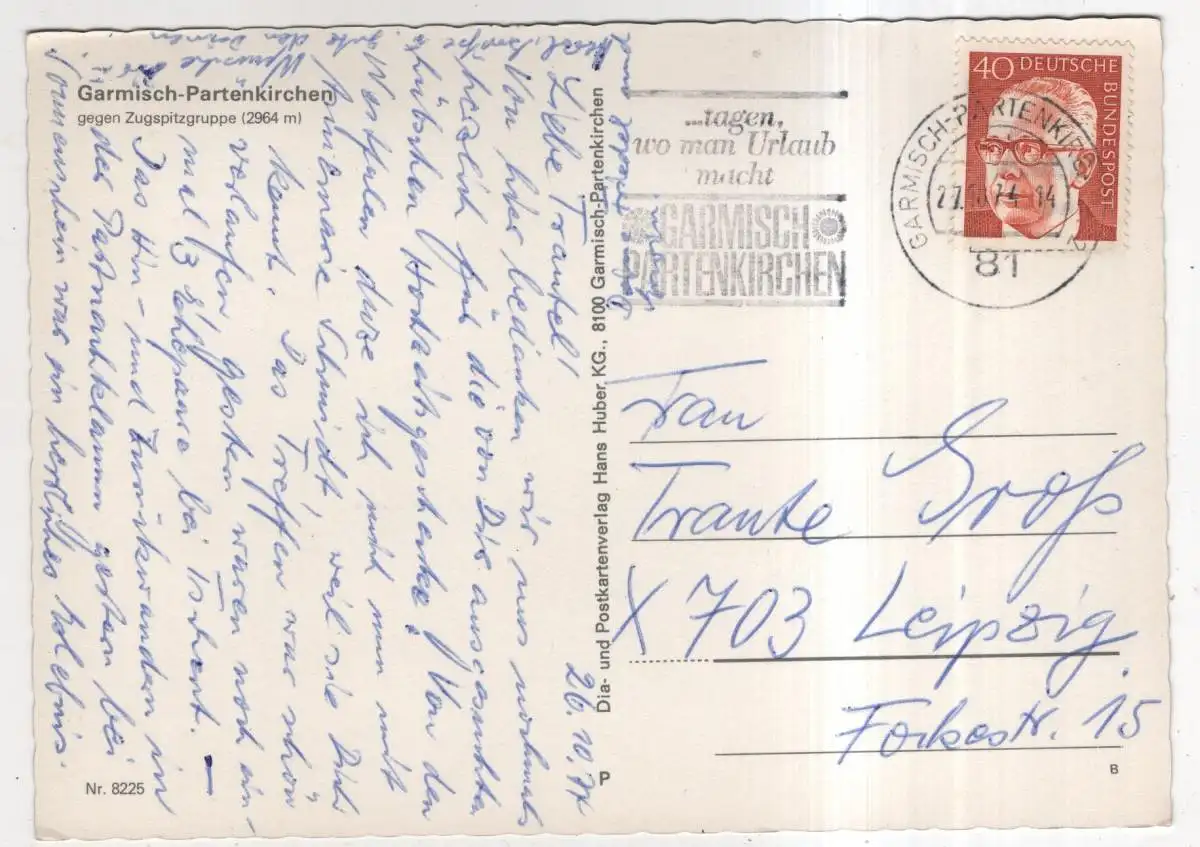 Garmisch-Partenkirchen
gegen Zugspitzgruppe (2964 m)
Nr. 8225
26.10.74
Liebe Trautel!
Von hier bedanken wir uns nochmals
herzlich für die von Dir ausgesuchten
hübschen Hochzeitsgeschenke! Von den
Westfalen duze ich mich nun mit
Annemarie Schmidt, weil sie Dich
kennt. Das Treffen war schön
verlaufen, gestern waren noch ein-
mal 3 Ehepaare bei Ischent. —
Das Hin- und Zurückwandern in
der Partnachklamm gestern bei
Sonnenschein war ein herrliches Erlebnis.
Dia- und Postkartenverlag Hans Huber KG., 8100 Garmisch-Partenkirchen
P
...tagen,
wo man Urlaub
macht
GARMISCH
PARTENKIRCHEN
GARMISCH-PARTENKIRCHEN
81
40 DEUTSCHE
BUNDESPOST
Frau
Traute Groß
X 703 Leipzig
Fockestr. 15
B